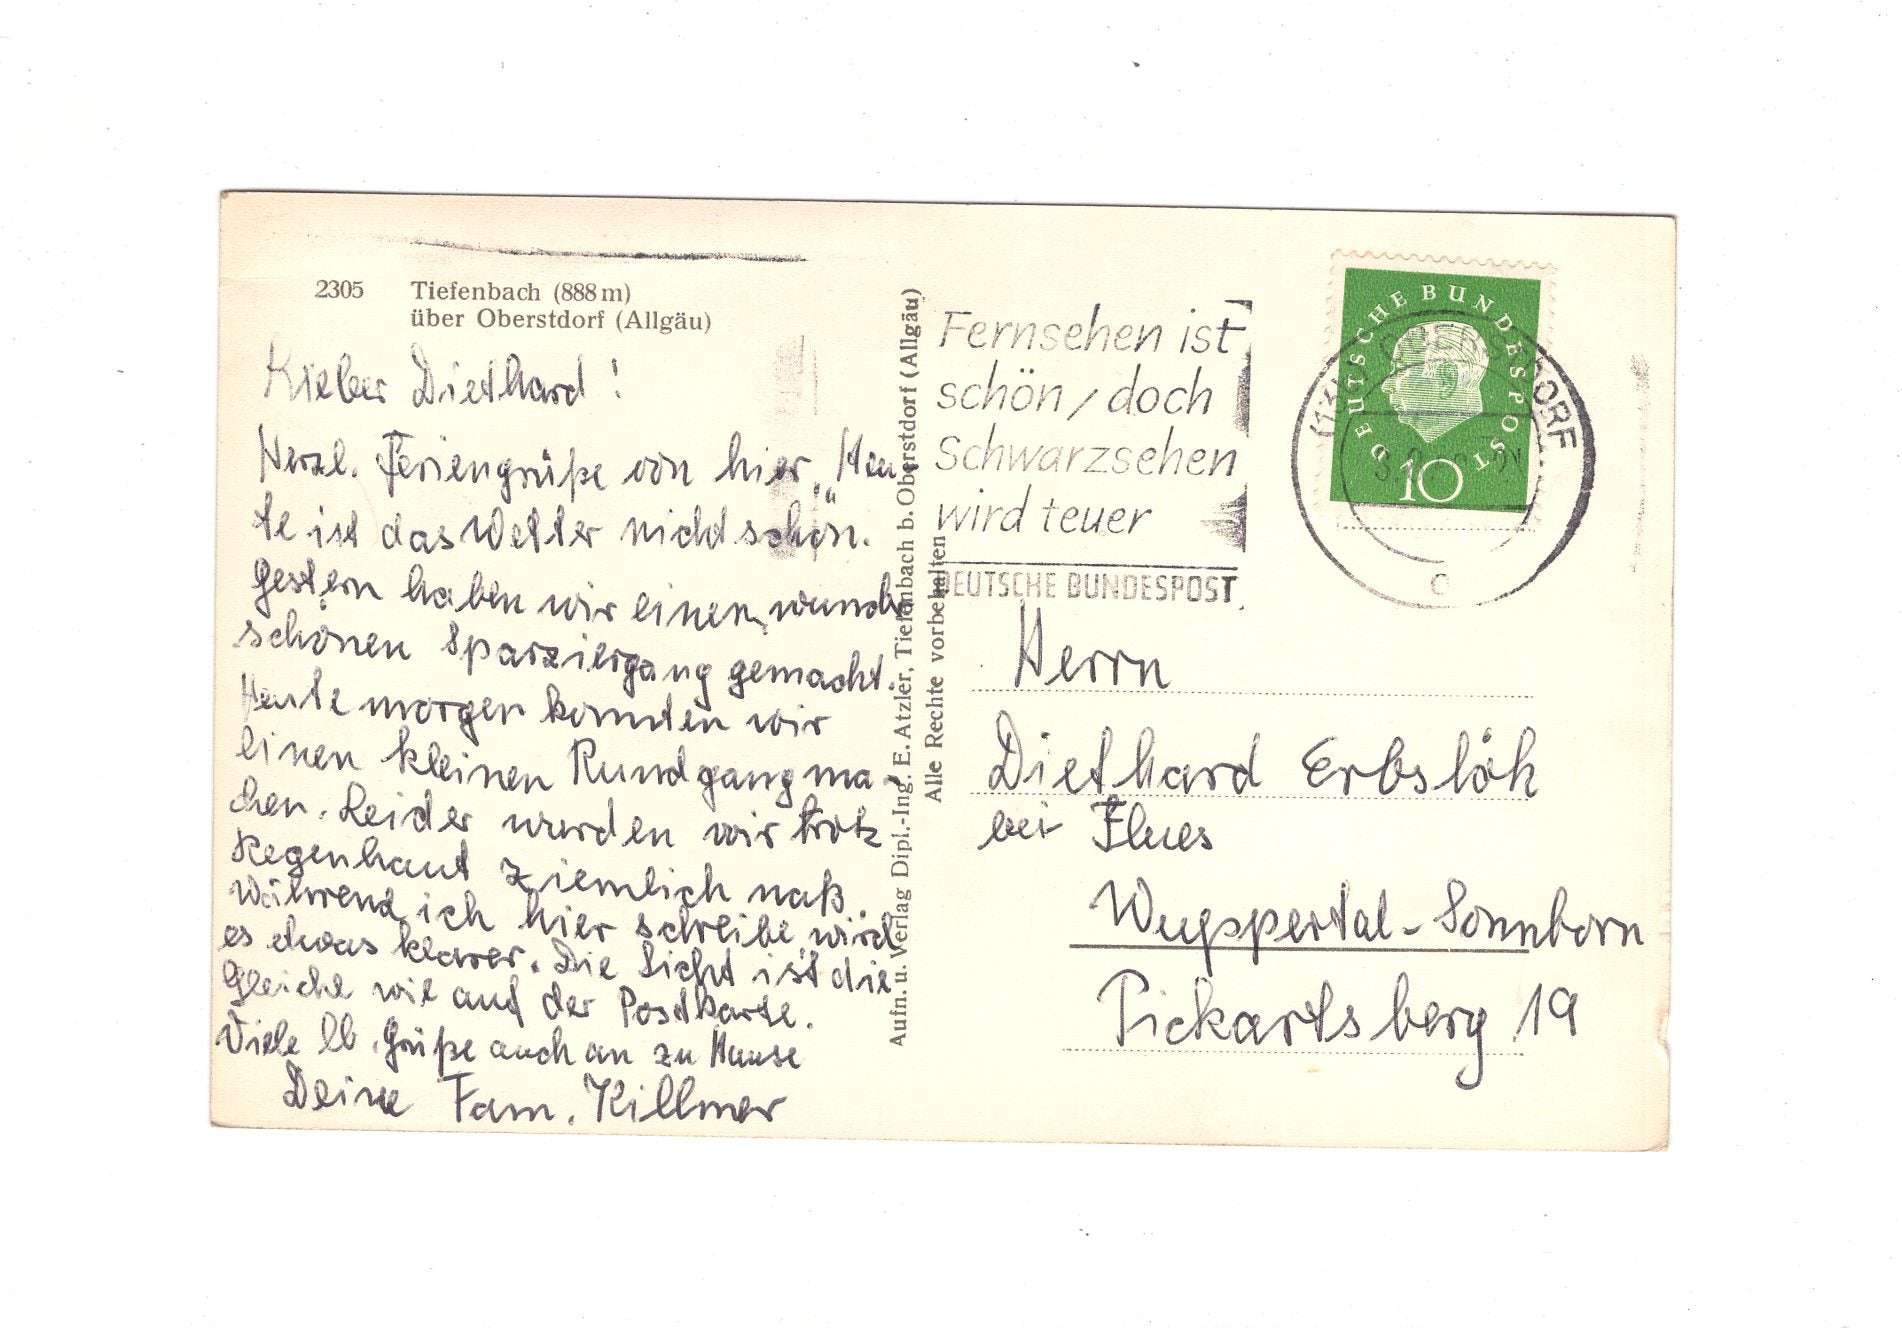 2305 Tiefenbach (888 m)
über Oberstdorf (Allgäu)
Lieber Diethard!
Herzl. Feriengrüße von hier. Heu-
te ist das Wetter nicht schön.
Gestern haben wir einen wunder
schönen Sparziergang gemacht.
Heute morgen konnten wir
einen kleinen Rundgang ma-
chen. Leider wurden wir trotz
Regenhaut ziemlich naß.
Während ich hier schreibe, wird
es etwas klarer. Die Sicht ist die
gleiche wie auf der Postkarte.
Viele lb. Grüße auch an zu Hause
Deine Fam. Killmer
Aufn. u. Verlag Dipl.-Ing. E. Atzler, Tiefenbach b. Oberstdorf (Allgäu)
Alle Rechte vorbehalten
Fernsehen ist
schön / doch
Schwarzsehen
wird teuer
DEUTSCHE BUNDESPOST
DEUTSCHE BUNDESPOST
10
OBERSTDORF
Herrn
Diethard Erbslöh
bei Flues
Wuppertal-Sonnborn
Pickartsberg 19